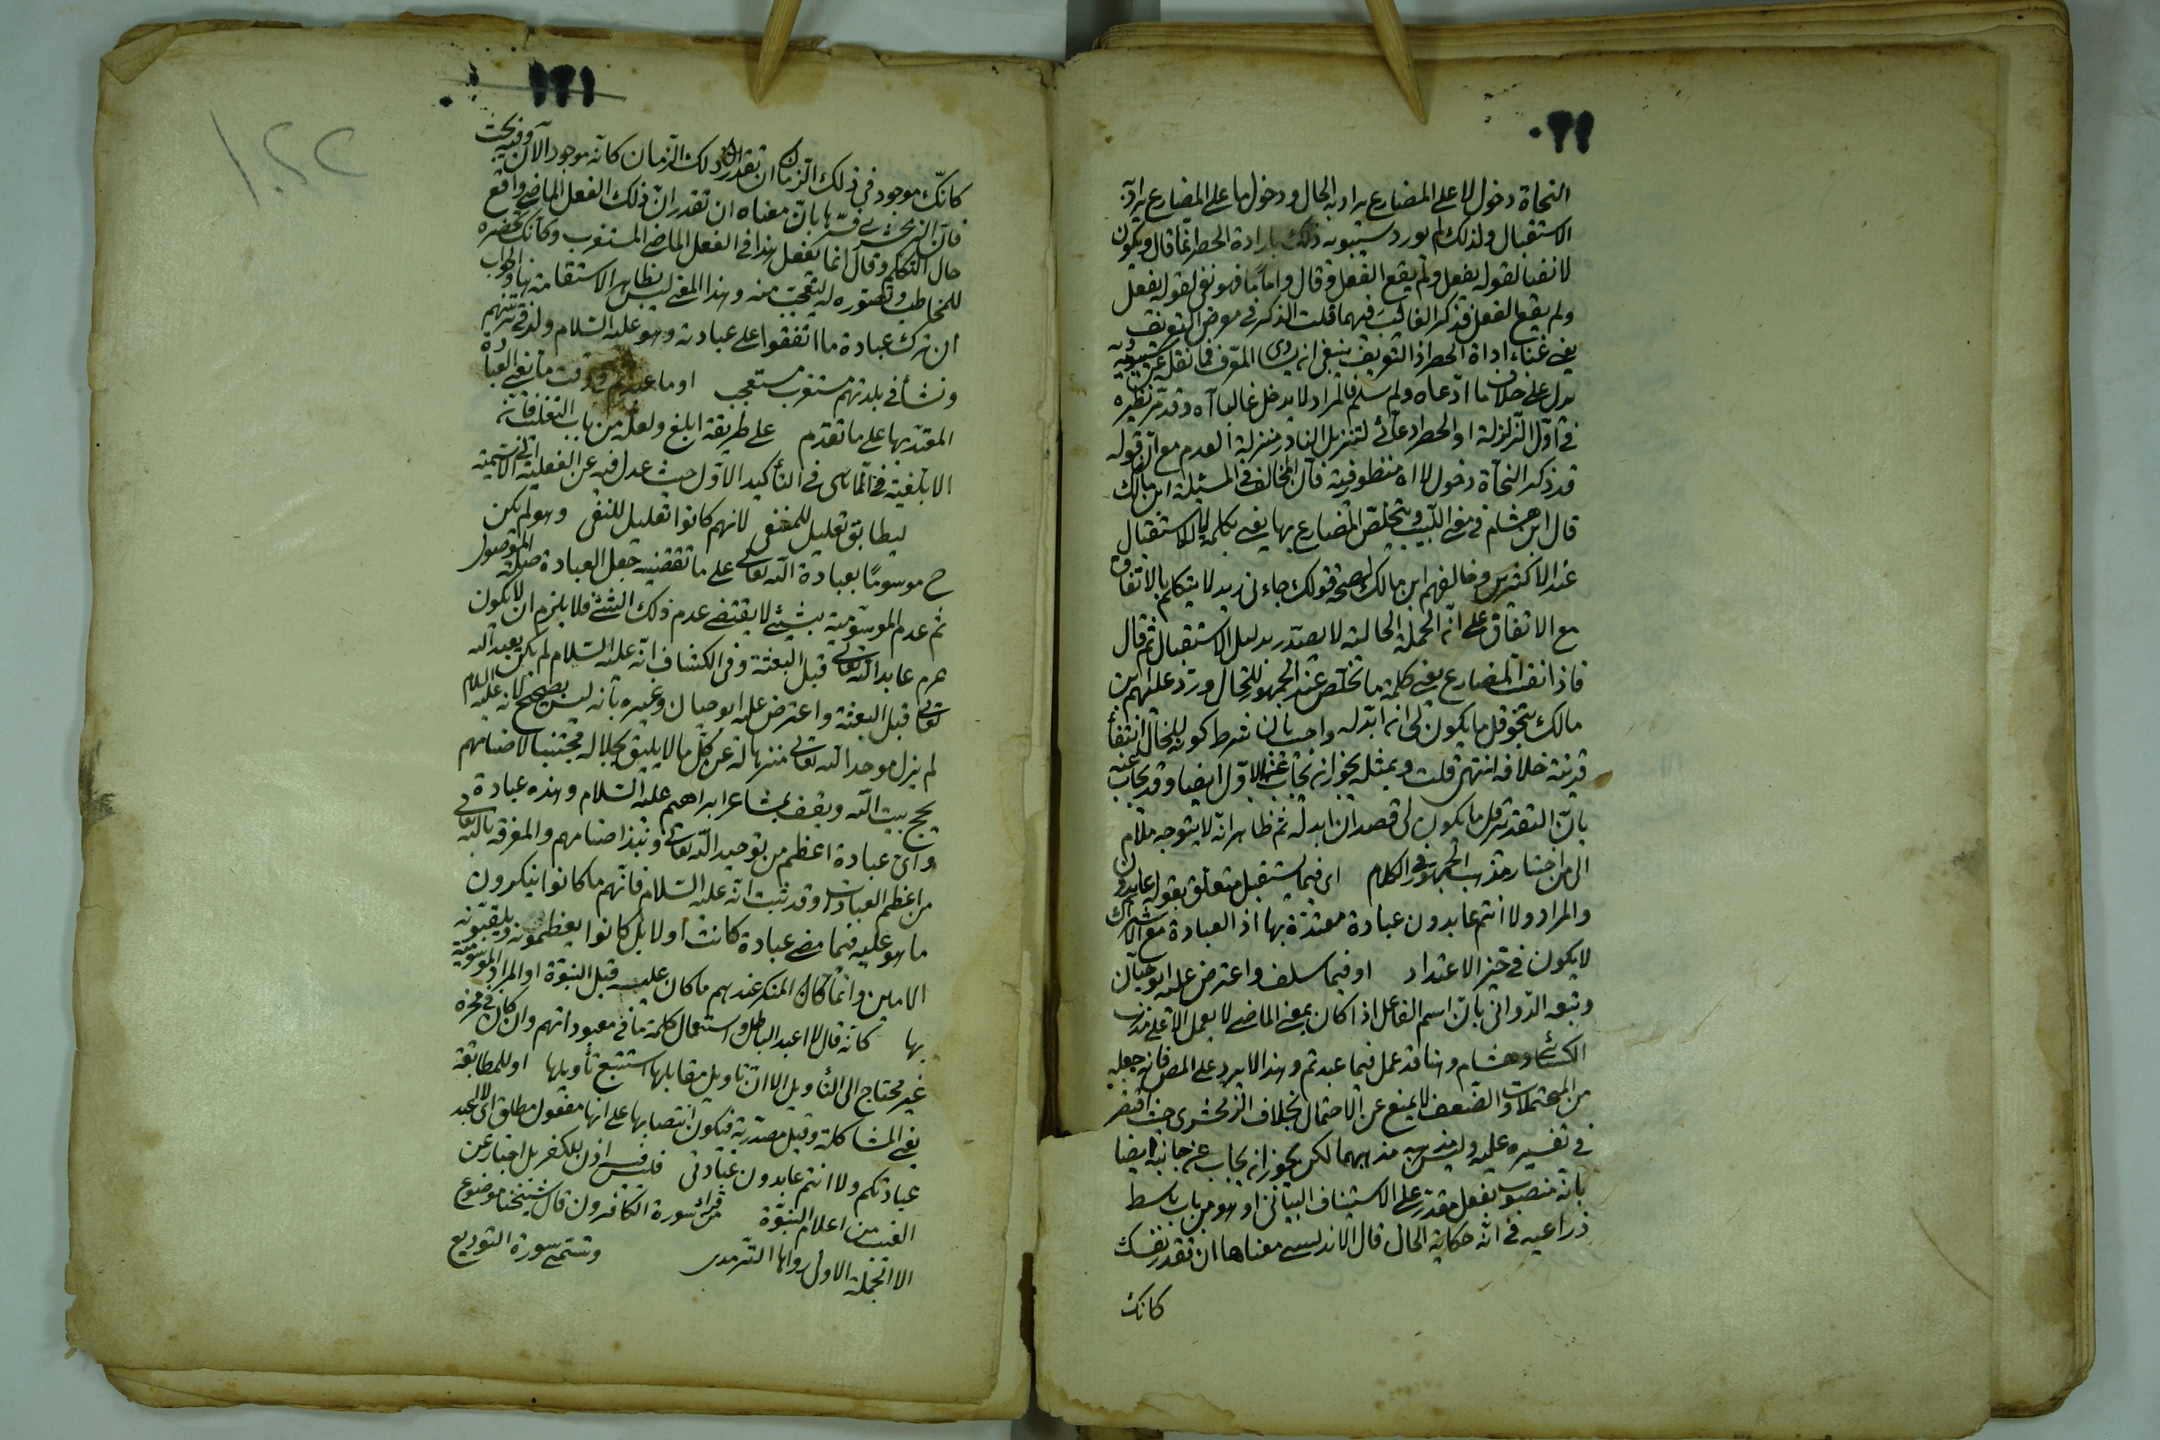 النحاة دخول لا على المضارع يراد به الحال ودخول ما على المضارع يراد به
الاستقبال ولذلك لم يورد سيبويه ذلك باداة الحصر انما قال ويكون
لا نفيا لقوله يفعل ولم يقع الفعل وقال واما ما فهو نفى لقوله يفعل
ولم يقع الفعل فذكر الغالب فيهما قلت الذكر فى معرض التعريف
يغنى غناء اداة الحصر اذ التعريف ينبغى ان يساوى المعرف فما نقله عن سيبويه
يدل على خلاف ما ادعاه ولم سلم فالمراد لا يدخل غالبا اه وقد مر نظيره
فى اول الزلزلة او الحصر ادعائى لتنزيل النادر منزلة العدم مع ان قوله
قد ذكر النحاة دخول لا اه منظور فيه فان المخالف فى المسئلة ابن مالك
قال ابن هشام فى مغنى اللبيب ويتخلص المضارع بها يعنى بكلمة لا للاستقبال
عند الاكثرين وخالفهم ابن مالك لصحة قولك جاءنى زيد لا يتكلم بالاتفاق
مع الاتفاق على ان الجملة الحالية لا يصدر بدليل الاستقبال ثم قال
فاذا نفت المضارع يعنى كلمة ما تخلص عند الجمهور للحال ورد عليهم ابن
مالك بنحو قل ما يكون لى ان ابدله واجيب بان شرط كونه للحال انتفاء
قرينة خلافه انتهى قلت وبمثله يجوز ان يجاب عن الاول ايضا وقد يجاب عنه
بان التقدير قل ما يكون لى قصد ان ابدله ثم ظاهر انه لا يتوجه ملام
الى من اختار مذهب الجمهور فى الكلام اى فيما يستقبل متعلق بقوله عابدون
والمراد ولا انتم عابدون عبادة معتدة بها اذ العبادة مع الاشراك
لا يكون فى حيز الاعتداد او فيما سلف واعترض عليه ابو حيان
وتبعه الدوانى بان اسم الفاعل اذا كان بمعنى الماضى لا يعمل الا على مذهب
الكسائى وهشام وهنا قد عمل فيما عبدتم وهذا لا يرد على المص فانه جعله
من المحتملات والضعف لا يمنع عن الاحتمال بخلاف الزمخشرى حيث اقتصر
فى تفسيره عليه وليس مذهبه مذهبهما لكن يجوز ان يجاب عن جانبه ايضا
بانه منصوب بفعل مقدر على الاستيناف البيانى او هو من باب باسط
ذراعيه فى انه حكاية الحال قال الاندلسى معناها ان تقدر نفسك
كانك
١٢١
كانك موجود فى ذلك الزمان او تقدر ذلك الزمان كانه موجود الآن وفيه بحث
فان الزمخشرى فسرها بان معناه ان تقدر ان ذلك الفعل الماضى واقع
حال التكلم وقال انما يفعل هذا فى الفعل الماضى المستغرب وكانك تحضره
للمخاطب وتصوره له ليتعجب منه وهذا المعنى ليس بظاهر الاستقامة هنا والجواب
ان ترك عبادة ما اتفقوا على عبادته وهو عليه السلام ولد فى قريتهم
ونشأ فى بلدتهم مستغرب مستعجب او ما عبدتم فى وقت ما يعنى العبادة
المعتد بها على ما تقدم على طريقة ابلغ ولعله من باب التغليب فان
الابلغية فى الثانى فى التأكيد الاول حيث عدل فيه عن الفعلية الى الاسمية
ليطابق تعليل للمنفى لانهم كانوا تعليل للنفى وهو لم يكن
ح موسوما بعبادة الله تعالى على ما تقتضيه جعل العبادة صلة الموصول
ثم عدم الموسومية بشئ لا يقتضى عدم ذلك الشئ فلا يلزم ان لا يكون
عم عابدا لله تعالى قبل البعثة وفى الكشاف انه عليه السلام لم يكن يعبد الله
تعالى قبل البعثة واعترض عليه ابو حيان وغيره بانه ليس بصحيح لانه عليه السلام
لم يزل موحدا لله تعالى منزها له عن كل ما لا يليق بجلاله مجتنبا لاصنامهم
يحج بيت الله ويقف بمشاعر ابراهيم عليه السلام وهذه عبادة
واى عبادة اعظم من توحيد الله تعالى ونبذ اصنامهم والمعرفة بالله تعالى
من اعظم العبادات وقد ثبت انه عليه السلام فانهم ما كانوا ينكرون
ما هو عليه فيما مضى عبادة كانت او لا بل كانوا يعظمونه ويلقبونه
الامين وانما كان المنكر عندهم ما كان عليه قبل النبوة او المراد الموسومية
بها كانه قال لا اعبد الباطل واستعمال كلمة ما فى معبوداتهم وان كان فى محزه
غير محتاج الى التأويل الا ان تاويل مقابلها استتبع تأويلها او للمطابقة
يعنى المشاكلة وقيل مصدرية فيكون انتصابها على انها مفعول مطلق اى لا اعبد
عبادتكم ولا انتم عابدون عبادتى فليس فيه اذن بالكفر بل اخبار عن
الغيب من اعلام النبوة من قرأ سورة الكافرون قال شيخنا موضوع
الا الجملة الاولى رواها الترمذى وتسمى سورة التوديع